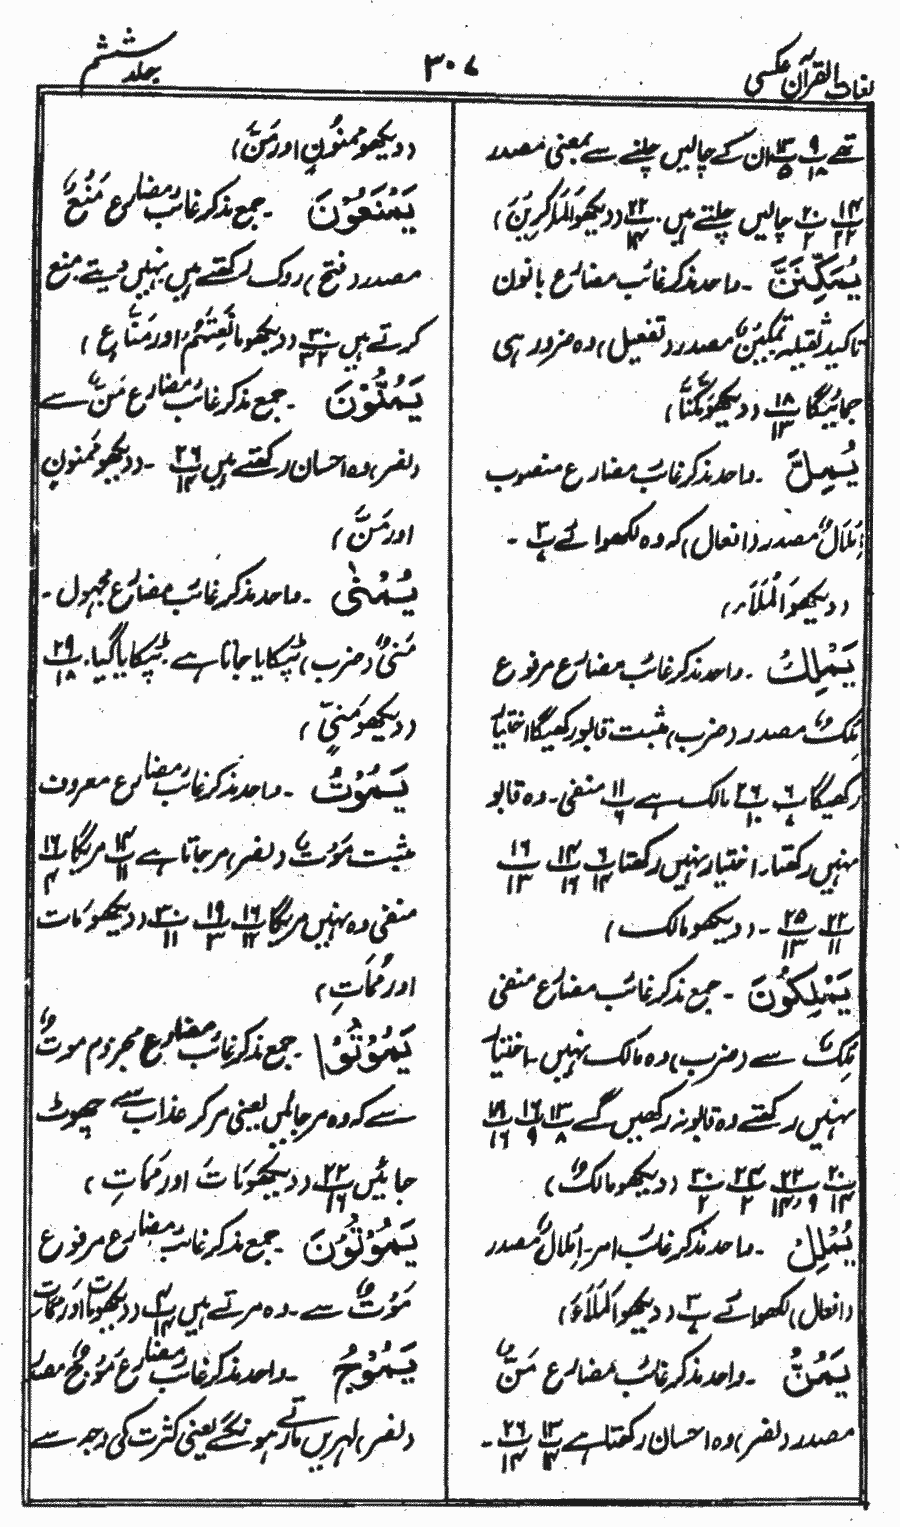 لغات القرآن عکسی
۳۰۷
جلد ششم
تھے ۹/۱۸ ۱۳/۵ ان کے چالیں چلنے سے بمعنی مصدر
۱۴/۲۲ ۲۰/۲ چالیں چلتے ہیں۔ ۲۲/۱۷ (دیکھو اَلْمَاکِرِیْنَ)
یُمَکِّنَنَّ ۔ واحد مذکر غائب مضارع بانون
تاکید ثقیلہ تَمْکِیْنٌ مصدر (تفعیل) وہ ضرور ہی
جمائیگا ۱۸/۱۳ (دیکھو مَکَّنَّا)
یُمِلَّ ۔ واحد مذکر غائب مضارع منصوب
اِمْلَالٌ مصدر (افعال) کہ وہ لکھوائے ۳/۷ ۔
(دیکھو اَلْمَلَاَ)
یَمْلِکُ ۔ واحد مذکر غائب مضارع مرفوع
مِلْکٌ مصدر (ضرب) مثبت قابو رکھیگا اختیار
رکھیگا ۶/۷ ۲۶/۱۰ مالک ہے ۱۱/۶ منفی۔ وہ قابو
نہیں رکھتا۔ اختیار نہیں رکھتا ۶/۱۴ ۱۴/۱۶ ۱۶/۱۳
۲۲/۱۱ ۲۵/۱۳ ۔ (دیکھو مالک)
یَمْلِکُوْنَ ۔ جمع مذکر غائب مضارع منفی
مِلْکٌ سے (ضرب) وہ مالک نہیں۔ اختیار
نہیں رکھتے وہ قابو نہ رکھیں گے ۱۳/۸ ۱۶/۹ ۱۹/۱۶
۲۰/۱۴ ۲۲/۹،۱۴ ۲۴/۲ ۳۰/۲ (دیکھو مالکٌ)
یُمْلِلْ ۔ واحد مذکر غائب امر۔ اِمْلَالٌ مصدر
(افعال) لکھوائے ۳/۷ (دیکھو اَلْمَلَاَءَ)
یَمُنُّ ۔ واحد مذکر غائب مضارع مَنٌّ
مصدر (نصر) وہ احسان رکھتا ہے ۱۳/۱۴ ۲۶/۱۴ ۔
(دیکھو ممنونٍ اور مَنَّ)
یَمْنَعُوْنَ ۔ جمع مذکر غائب مضارع مَنْعٌ
مصدر (فتح) روک رکھتے ہیں نہیں دیتے منع
کرتے ہیں ۳۰/۳۲ (دیکھو مانِعَتُہُمْ اور مَنَّاعٍ)
یَمُنُّوْنَ ۔ جمع مذکر غائب مضارع مَنٌّ سے
(نصر) وہ احسان رکھتے ہیں ۲۶/۱۴ ۔ (دیکھو ممنونٍ
اور مَنَّ)
یُمْنٰی ۔ واحد مذکر غائب مضارع مجہول۔
مَنْیٌ (ضرب) ٹپکایا جاتا ہے۔ ٹپکایا گیا۔ ۲۹/۱۸
(دیکھو مَنِیٍّ)
یَمُوْتُ ۔ واحد مذکر غائب مضارع معروف
مثبت مَوْتٌ (نصر) مر جاتا ہے ۱۴/۱۱ مریگا ۱۶/۴
منفی وہ نہیں مریگا ۱۶/۱۲ ۱۹/۳ ۳۰/۱۱ (دیکھو مَاتَ
اور مَمَاتِ)
یَمُوْتُوْا ۔ جمع مذکر غائب مضارع مجزوم موتٌ
سے کہ وہ مر جائیں یعنی مر کر عذاب سے چھوٹ
جائیں ۲۲/۱۶ (دیکھو مَاتَ اور مَمَاتِ)
یَمُوْتُوْنَ ۔ جمع مذکر غائب مضارع مرفوع
مَوْتٌ سے ۔ وہ مرتے ہیں ۴/۱۴ (دیکھو مات اور ممات)
یَمُوْجُ ۔ واحد مذکر غائب مضارع مَوْجٌ مصدر
(نصر) لہریں مارتے ہونگے یعنی کثرت کی وجہ سے